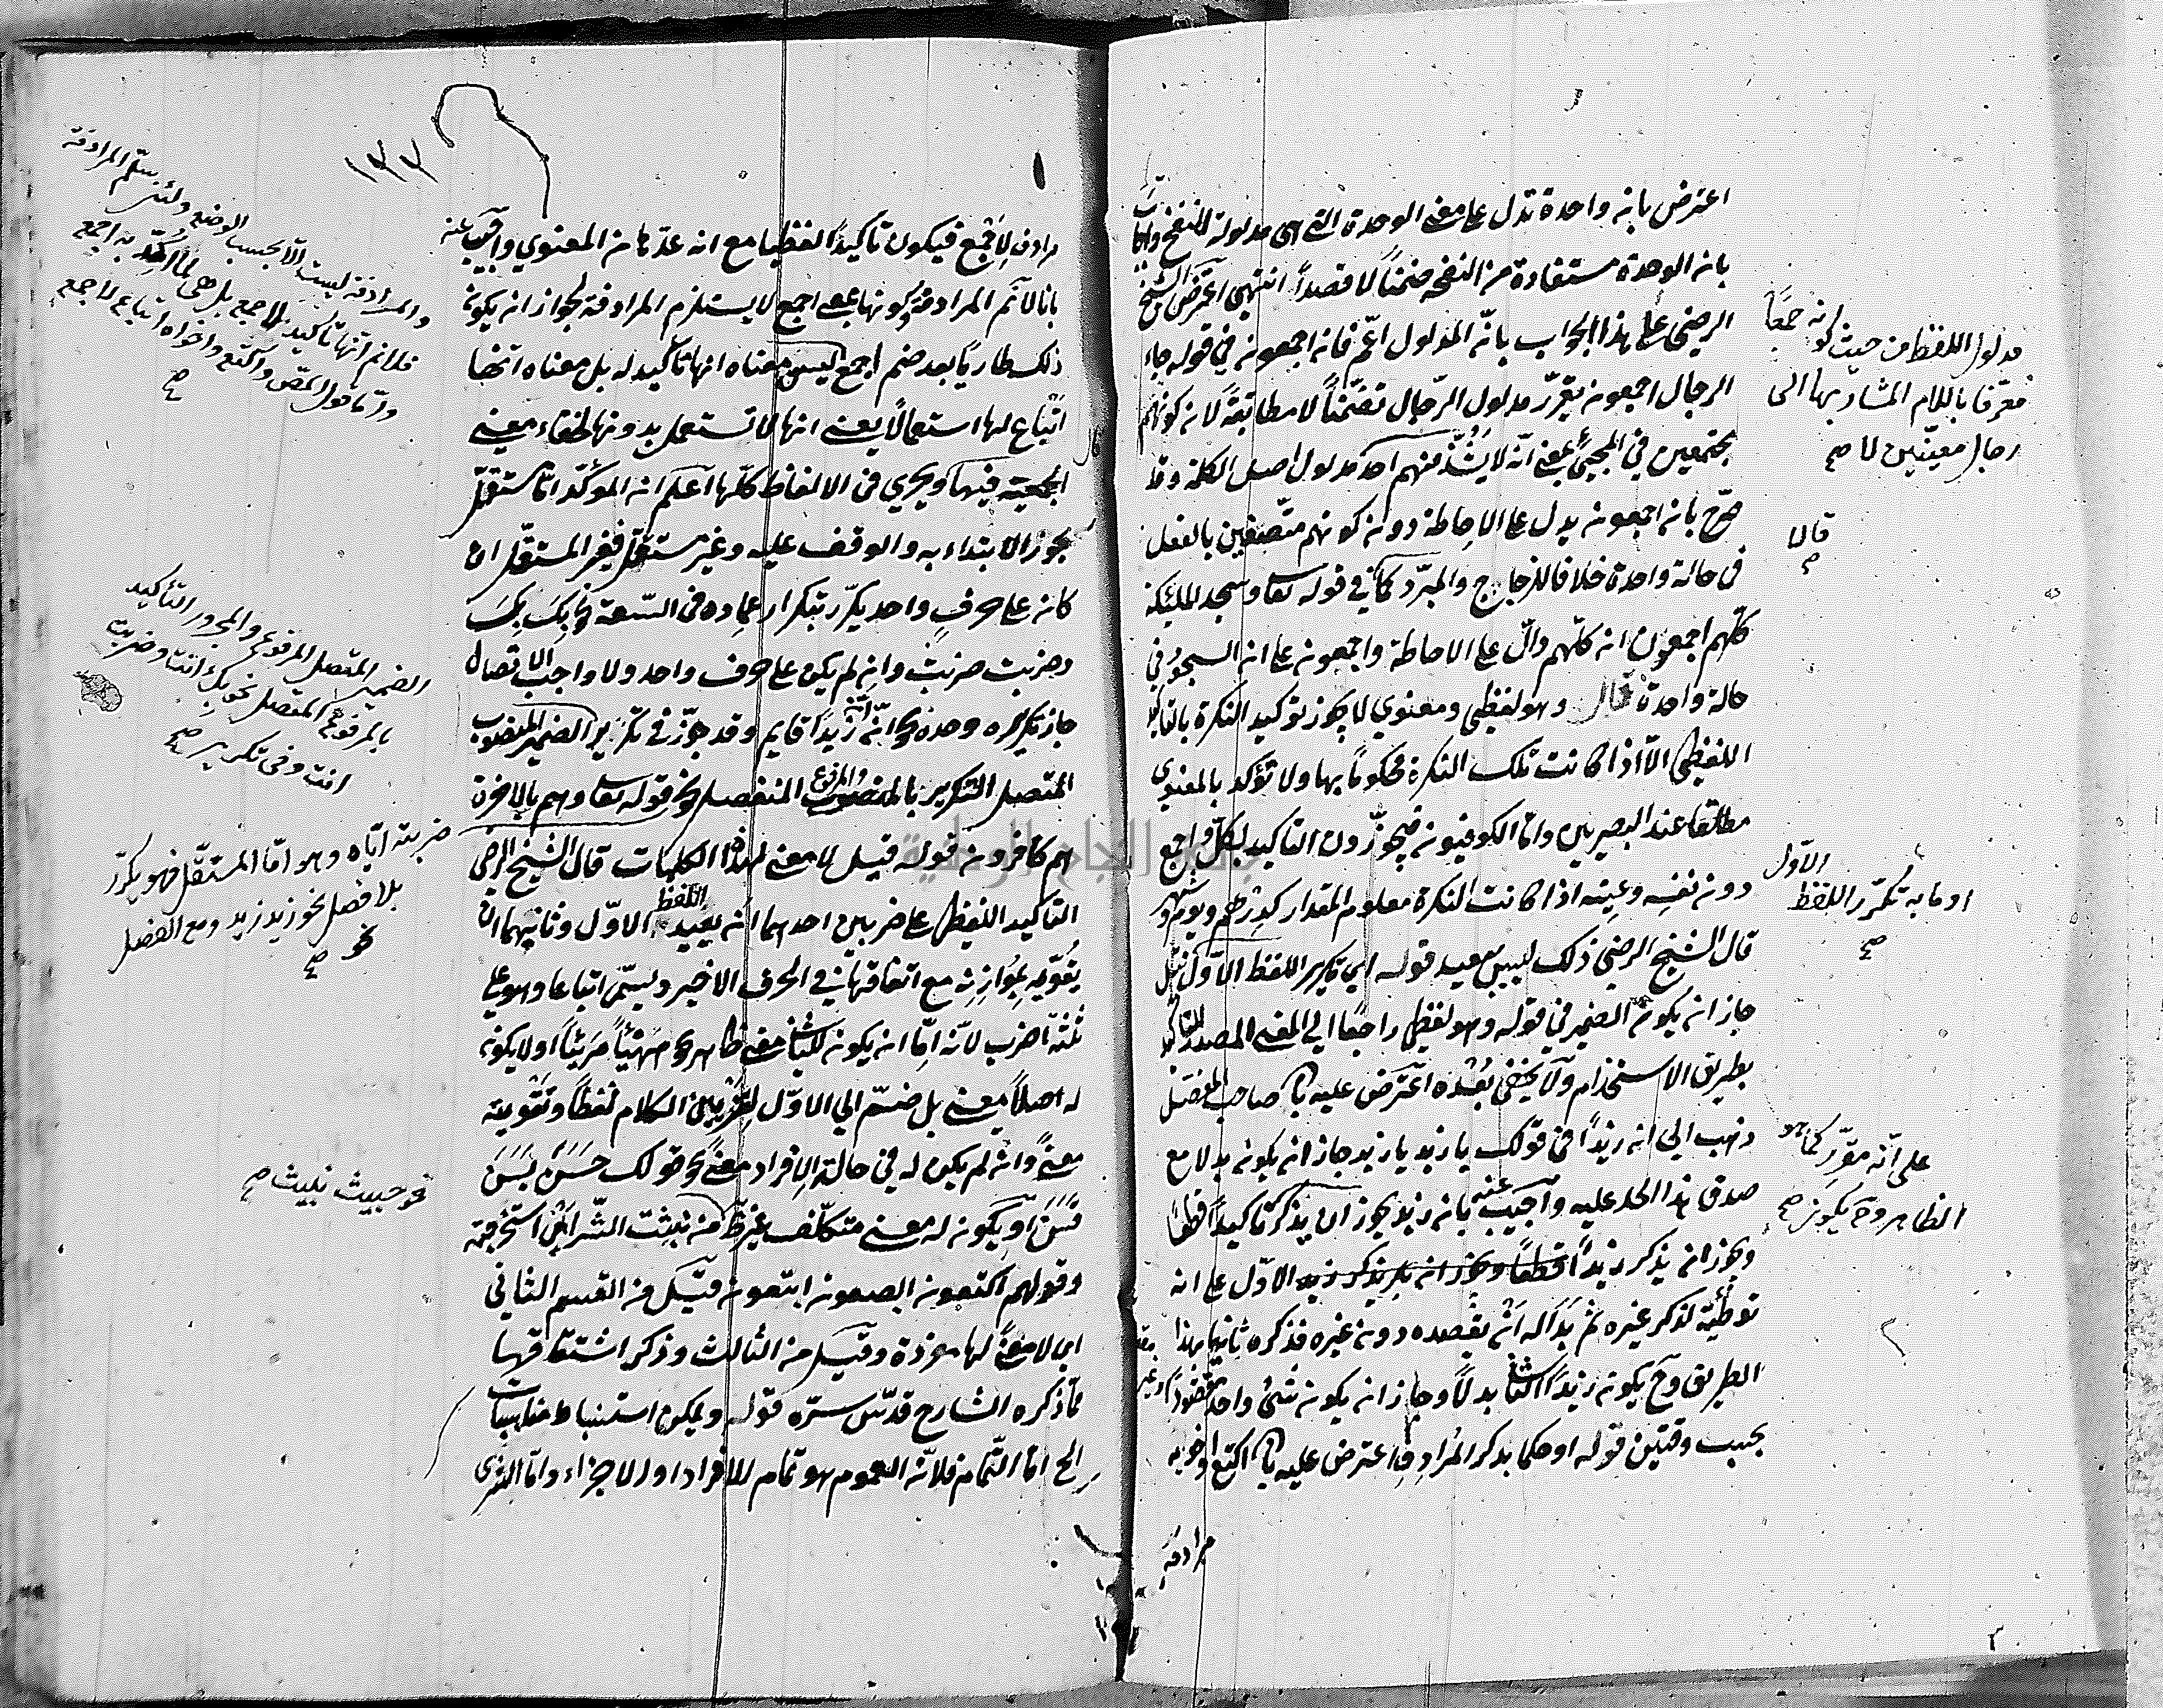 اعترض بانه واحدة تدل على معنى الوحدة التي هي مدلولة للنفخ واجاب
بانه الوحدة مستفادة من النفخه ضمناً لا قصداً انتهى اعترض الشيخ
الرضي على هذا الجواب بانّ المدلول اعمّ فانه اجمعونه في قوله جاء
الرجال اجمعونه يقرّر مدلول الرّجال تضمّناً لا مطابقةً لانه كونهم
مجتمعين في المجيئ بمعنى انّه لا يشذّ منهم احد مدلول اصل الكلمة وقد
صرّح بانه اجمعونه يدل على الاحاطة دونه كونهم متّصفين بالفعل
في حالة واحدة خلافا للزجاج والمبرّد كما في قوله تعا وسجد الملئكة
كلّهم اجمعون انه كلّهم دالّ على الاحاطة واجمعونه على انه السجود في
حالة واحدة قال وهو لفظي ومعنوي لا يجوز توكيد النكرة بالتاكيد
اللفظي الّا اذا كانت تلك النكرة محكوماً بها ولا تؤكد بالمعنوي
مطلقا عند البصريين وامّا الكوفيونه فيجوّزون التاكيد بكلّ واجمع
دونه نفسِه وعينِه اذا كانت النكرة معلوم المقدار كدرهم ويوم وشهر
قال الشيخ الرضي ذلك ليس ببعيد قوله اي تكرير اللفظ الاوّل قيل
جاز انه يكونه الضمير في قوله وهو لفظي راجعا الى المعنى المصدر للتاكيد
بطريق الاستخدام ولا يخفى بُعْده اعترض عليه بانّ صاحب المفصّل
ذهب الى انه زيداً في قولك يا زيد يا زيد جاز انه يكونه بدلا مع
صدق هذا الحد عليه واجيب عنه بانه زيد يجوز ان يذكر تاكيداً قطعا
ويجوز انه يذكر زيد الاوّل على انه
توطئة لذكر غيره ثم بدا له انْ يقصده دونه غيره فذكره ثانيا بهذا
الطريق وح يكونه زيداً الثاني بدلاً وجاز انه يكونه شئ واحد مقصوداً وغير
بحسب وقتين قوله او حكما بذكر المُرادِف اعترض عليه بانّ اكتع واخواته
مرادفة
مدلول اللفظ من حيث كونه جمعاً
معرّفا باللام المشار بها الى
رجال معينّين لا صح
قالا
صح
الاوّل
او ما به تكرّر اللفظ
صح
على انّه مقرّر كما هو
الظاهر وح يكونه صح
١٣٧
مرادف لاجمع فيكون تاكيداً لفظيا مع انه عدّها من المعنوي واجيب عنه
بانا لا نَم المرادفة وكونها بمعنى اجمع لا يستلزم المرادفة لجواز انه يكونه
ذلك طارياً بعد ضم اجمع ليس معناه انها تاكيد له بل معناه انها
اتباع لها استعمالاً يعني انها لا تستعمل بدونها لخفاء معنى
الجمعية فيها ويجري في الالفاظ كلّها اعلم انه المؤكّد امّا مستقلّ
يجوز الابتداء به والوقف عليه وغير مستقلّ فغير المستقلّ ان
كانه على حرفٍ واحد يكرّر بتكرار عماده في السّعة نحو بكَ بِكَ
وضربت ضربت وانِ لم يكن على حرف واحد ولا واجب الاتصال
جاز تكريره وحده نحو انّ انّ زيداً قايم وقد جوّز في تكرير الضمير المنصوب
المتصل التكرير بالمنصوب المنفصل نحو قوله تعا وهم بالاخرة
هم كافرونه قوله قيل لا معنى لهذه الكلمات قال الشيخ الرضي
التاكيد اللفظي على ضربين احدهما انْ يعيد اللفظ الاوّل وثانيهما ان
يقوّيه بمُوازنه مع اتفاقهما في الحرف الاخير ويسمّى اتباعا وهو على
ثلثة اضرب لانّه امّا انه يكونه للثاني معنى ظاهر نحو هنيئاً مَريئاً او لا يكونه
له اصلاً معنى بل ضمّ الى الاوّل لتزيين الكلام لفظاً وتقويته
معنىً وانْ لم يكن له في حالة الافراد معنىً نحو قولك حَسَن بَسَن
قَسَن او يكونه له معنى متكلّف غير ظ من نبثت الشّر ايْ استخرجته
وقولهم اكتعونه ابصعونه ابتعونه قيل من القسم الثاني
اي لا معنىً لها مفردة وقيل من الثالث وذكر اشتقاقها
ما ذكره الشارح قدّس سرّه قوله ويمكن استنباط مناسبات
الخ امّا التّمام فلانّه العموم هو تمام للافراد او للاجزاء وامّا المرى
والمرادفة ليست الّا بحسب الوضع ولئن سلّم المرادفة
فلا نم انّها تاكيد لاجمع بل هي لما اُكّد به اجمع
وامّا قول المصّ واكتع واخواه اتباع لاجمع
صح
الضمير المتصل المرفوع والمجرور التأكيد
بالمرفوع المنفصل نحو بكِ انت وضربت
انت وفي تكرير صح
ضربته ايّاه وهو امّا المستقلّ فهو يكرّر
بلا فصل نحو زيد زيد ومع الفصل
نحو صح
نحو خبيث نبيث صح